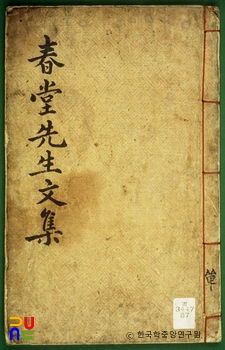 春堂先生文集
ⓒ 한국학중앙연구원